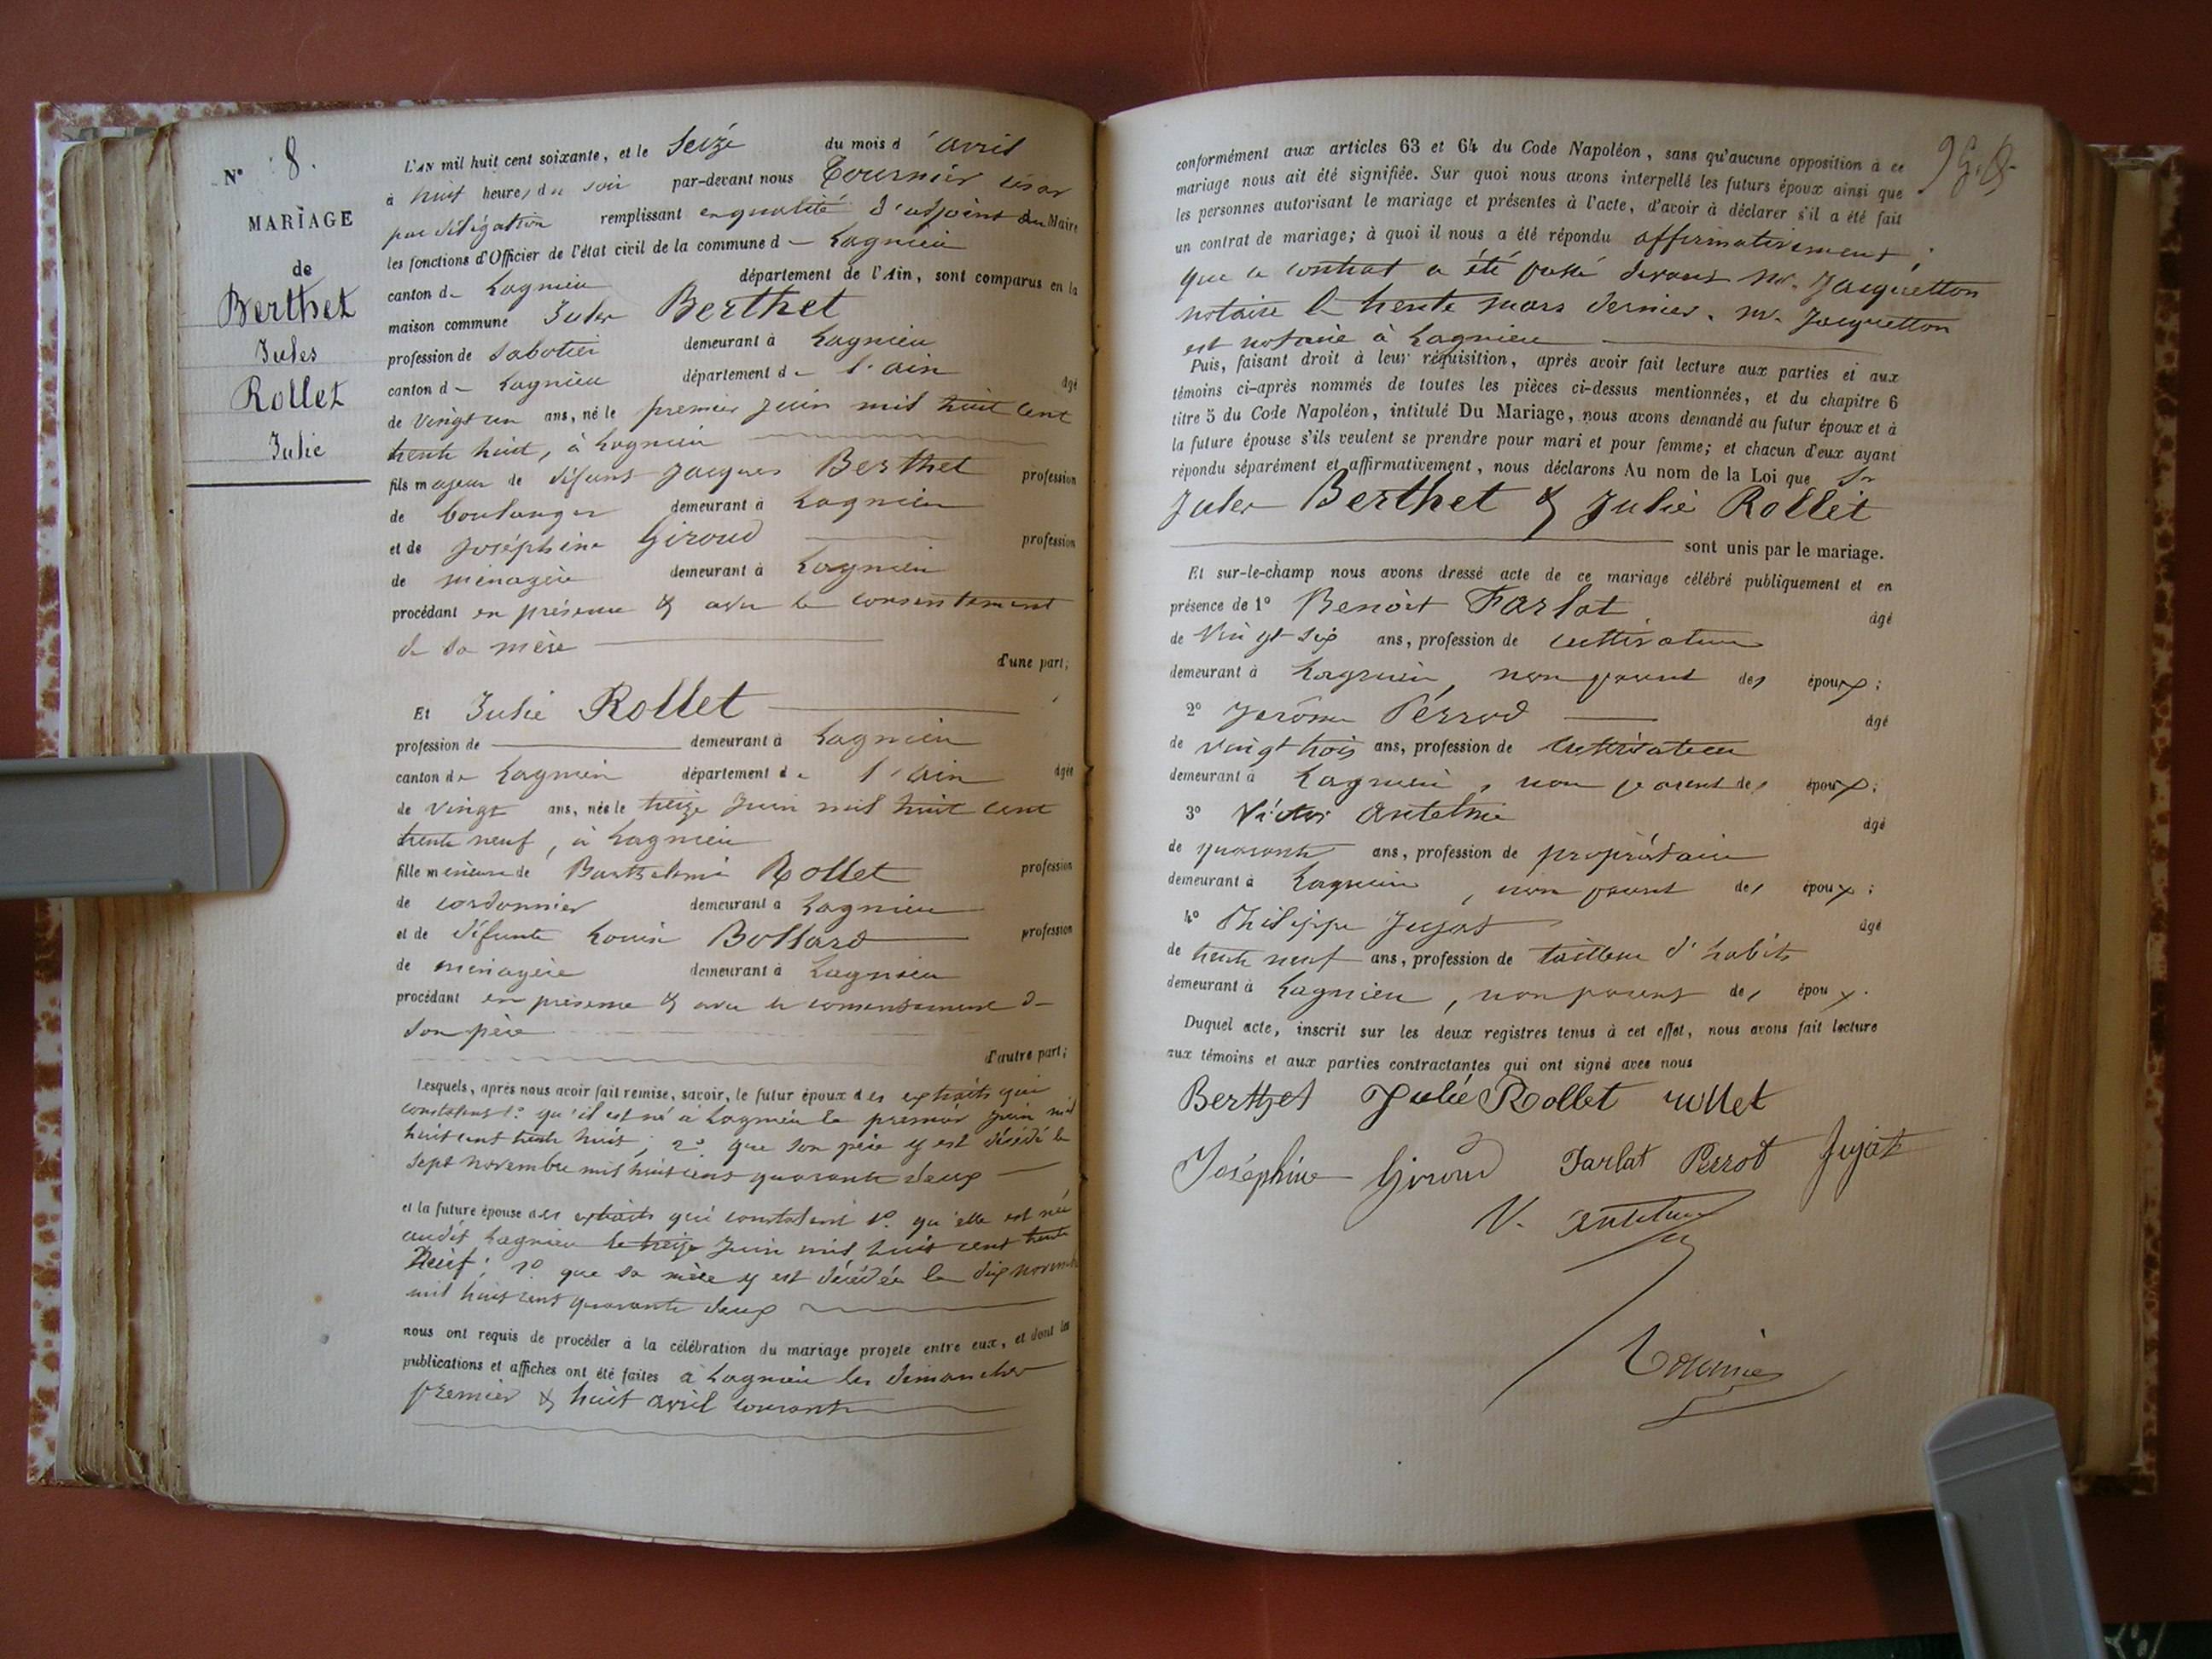 N° 8.
MARIAGE
de
Berthet
Jules
Rollet
Julie
L'AN mil huit cent soixante, et le Seize du mois d'avril
à huit heures du soir par-devant nous Tournier César
par délégation remplissant en qualité d'adjoint du Maire
les fonctions d'Officier de l'état civil de la commune de Lagnieu
canton de Lagnieu département de l'Ain, sont comparus en la
maison commune Jules Berthet
profession de Sabotier demeurant à Lagnieu
canton de Lagnieu département de l'ain âgé
de vingt un ans, né le premier Juin mil huit cent
trente huit, à Lagnieu
fils majeur de défunt Jacques Berthet profession
de boulanger demeurant à Lagnieu
et de Joséphine Giroud profession
de ménagère demeurant à Lagnieu
procédant en présence & avec le consentement
de sa mère
d'une part;
Et Julie Rollet
profession de demeurant à Lagnieu
canton de Lagnieu département de l'ain âgée
de vingt ans, née le treize Juin mil huit cent
trente neuf, à Lagnieu
fille mineure de Barthelemi Rollet profession
de cordonnier demeurant à Lagnieu
et de défunte Louise Bollard profession
de ménagère demeurant à Lagnieu
procédant en présence & avec le consentement de
son père
d'autre part;
Lesquels, après nous avoir fait remise, savoir, le futur époux des extraits qui
constatent 1° qu'il est né à Lagnieu le premier Juin mil
huit cent trente huit; 2° que son père y est décédé le
sept novembre mil huit cent quarante deux
et la future épouse des extraits qui constatent 1° qu'elle est née
audit Lagnieu le treize Juin mil huit cent trente
Neuf; 2° que sa mère y est décédée le dix novembre
mil huit cent quarante deux
nous ont requis de procéder à la célébration du mariage projeté entre eux, et dont les
publications et affiches ont été faites à Lagnieu les dimanches
premier & huit avril courant
conformément aux articles 63 et 64 du Code Napoléon, sans qu'aucune opposition à ce
mariage nous ait été signifiée. Sur quoi nous avons interpellé les futurs époux ainsi que
les personnes autorisant le mariage et présentes à l'acte, d'avoir à déclarer s'il a été fait
un contrat de mariage; à quoi il nous a été répondu affirmativement;
que ce contrat a été passé devant Mr. Jacquetton
notaire le trente mars dernier. Mr. Jacquetton
est notaire à Lagnieu
Puis, faisant droit à leur réquisition, après avoir fait lecture aux parties et aux
témoins ci-après nommés de toutes les pièces ci-dessus mentionnées, et du chapitre 6
titre 5 du Code Napoléon, intitulé Du Mariage, nous avons demandé au futur époux et à
la future épouse s'ils veulent se prendre pour mari et pour femme; et chacun d'eux ayant
répondu séparément et affirmativement, nous déclarons Au nom de la Loi que Sr
Jules Berthet & Julie Rollet
sont unis par le mariage.
Et sur-le-champ nous avons dressé acte de ce mariage célébré publiquement et en
présence de 1° Benoît Farlat âgé
de vingt six ans, profession de cultivateur
demeurant à Lagnieu, non parent des époux;
2° Jérôme Perrod âgé
de vingt trois ans, profession de cultivateur
demeurant à Lagnieu, non parent des époux;
3° Victor Antelme âgé
de quarante ans, profession de propriétaire
demeurant à Lagnieu, non parent des époux;
4° Philippe Jujat âgé
de trente neuf ans, profession de tailleur d'habits
demeurant à Lagnieu, non parent des époux.
Duquel acte, inscrit sur les deux registres tenus à cet effet, nous avons fait lecture
aux témoins et aux parties contractantes qui ont signé avec nous
Berthet Julie Rollet rollet
Joséphine Giroud Farlat Perrod Jujat
V. Antelme
Tournier